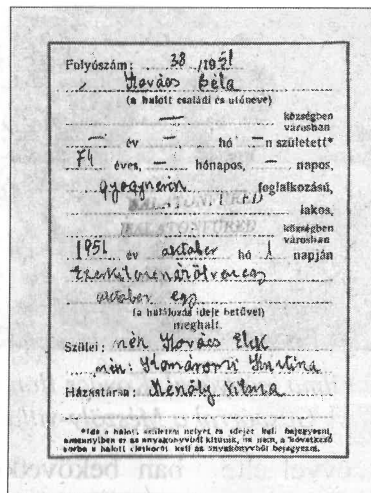 Folyószám: 38 /1951
Kovács Béla
(a halott családi és utóneve)
—
községben
városban
— év —, hó —n született*
74 éves, — hónapos, — napos,
foglalkozású,
lakos,
községben
városban
1951 év október hó 1 napján
október egy
(a halálozás ideje betűvel)
meghalt.
Szülei: néh Kovács Elek
néh: Komáromi Krisztina
Házastársa: Vilma
*Ide a halott születési helyét és idejét kell bejegyezni,
amennyiben ez az anyakönyvből kitűnik, ha nem, a következő
sorba a halott életkorát kell az anyakönyvből bejegyezni.